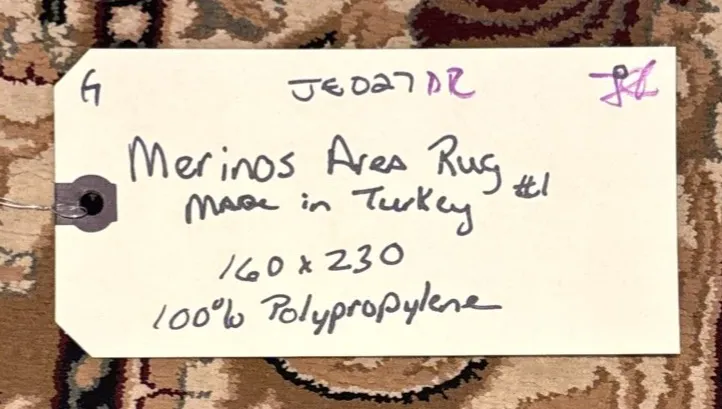 G JE027DR
Merinos Area Rug #1
Made in Turkey
160 x 230
100% Polypropylene